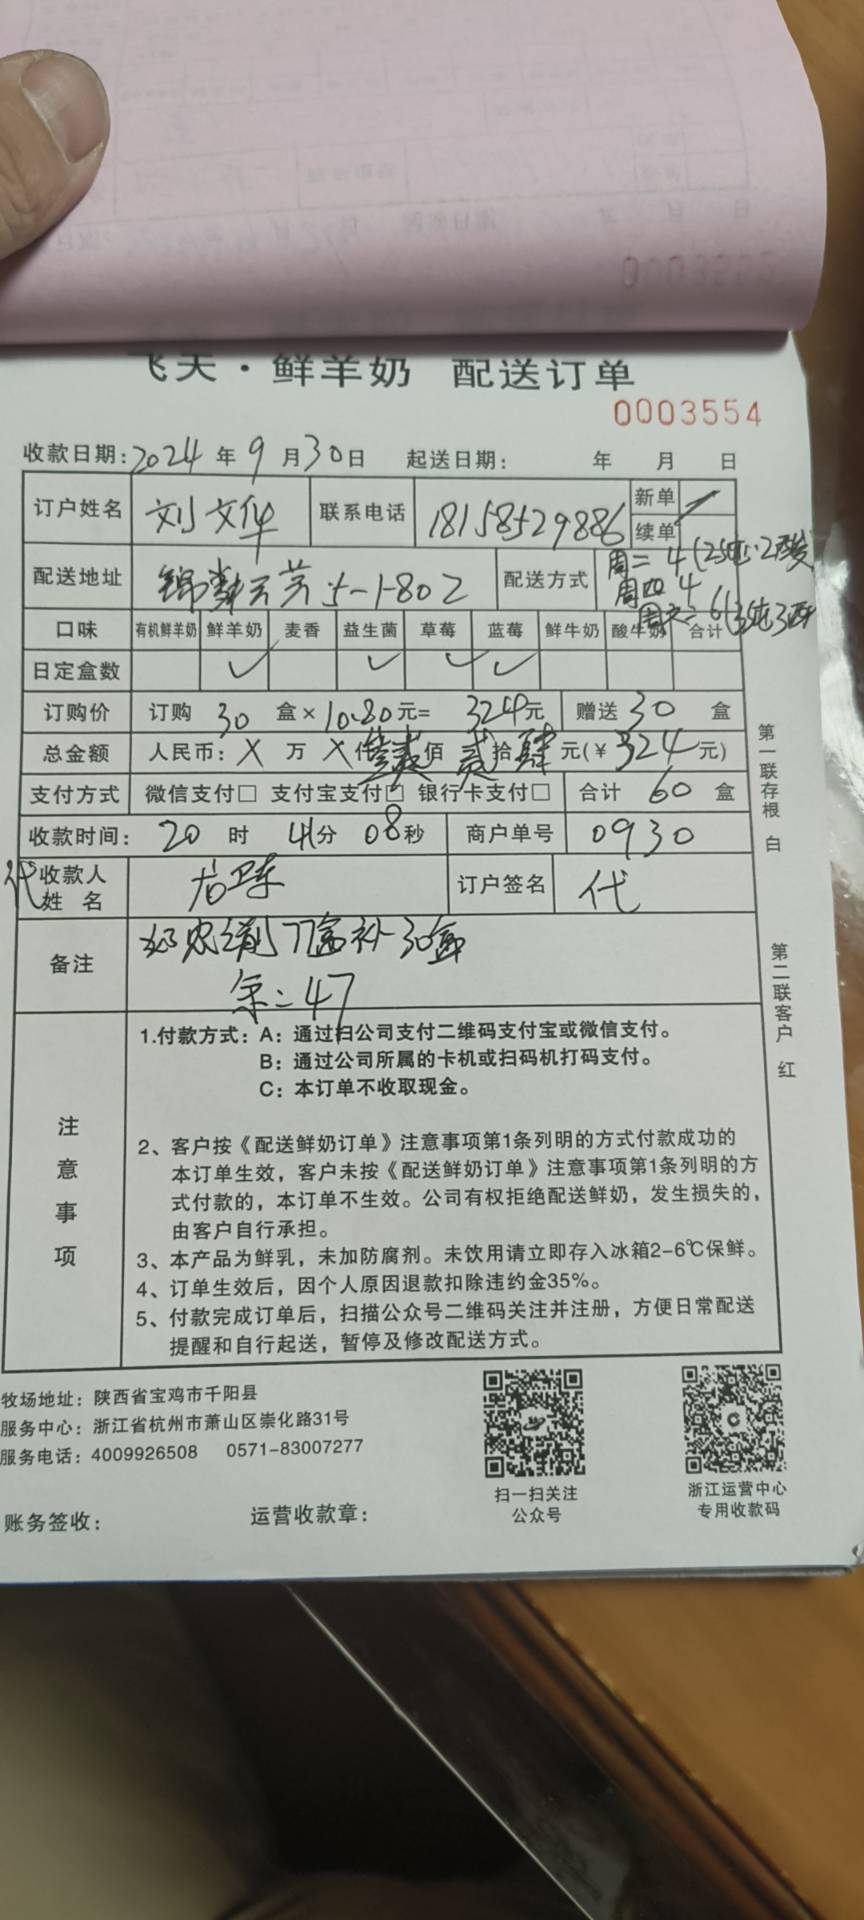 飞天·鲜羊奶 配送订单
0003554
收款日期：2024年9月30日 起送日期： 年 月 日
订户姓名 刘文华 联系电话 18158529886 新单
续单
配送地址 5-1-802 配送方式 周二 4
周四 4
周六 6
口味 有机鲜羊奶 鲜羊奶 麦香 益生菌 草莓 蓝莓 鲜牛奶 酸牛奶 合计
日定盒数 ✓ ✓ ✓ ✓
订购价 订购 30 盒×10.80元= 324元 赠送 30 盒
总金额 人民币：X 万 X 仟 叁 佰 贰 拾 肆 元(￥324元)
支付方式 微信支付□ 支付宝支付☑ 银行卡支付□ 合计 60 盒
收款时间： 20 时 41分 08秒 商户单号 0930
代收款人姓名 订户签名 代
备注 77盒补30盒
余=47
注意事项
1.付款方式：A：通过扫公司支付二维码支付宝或微信支付。
B：通过公司所属的卡机或扫码机打码支付。
C：本订单不收取现金。
2、客户按《配送鲜奶订单》注意事项第1条列明的方式付款成功的
本订单生效，客户未按《配送鲜奶订单》注意事项第1条列明的方
式付款的，本订单不生效。公司有权拒绝配送鲜奶，发生损失的，
由客户自行承担。
3、本产品为鲜乳，未加防腐剂。未饮用请立即存入冰箱2-6℃保鲜。
4、订单生效后，因个人原因退款扣除违约金35%。
5、付款完成订单后，扫描公众号二维码关注并注册，方便日常配送
提醒和自行起送，暂停及修改配送方式。
第一联存根 白
第二联客户 红
牧场地址：陕西省宝鸡市千阳县
服务中心：浙江省杭州市萧山区崇化路31号
服务电话：4009926508 0571-83007277
扫一扫关注
公众号
浙江运营中心
专用收款码
账务签收： 运营收款章：